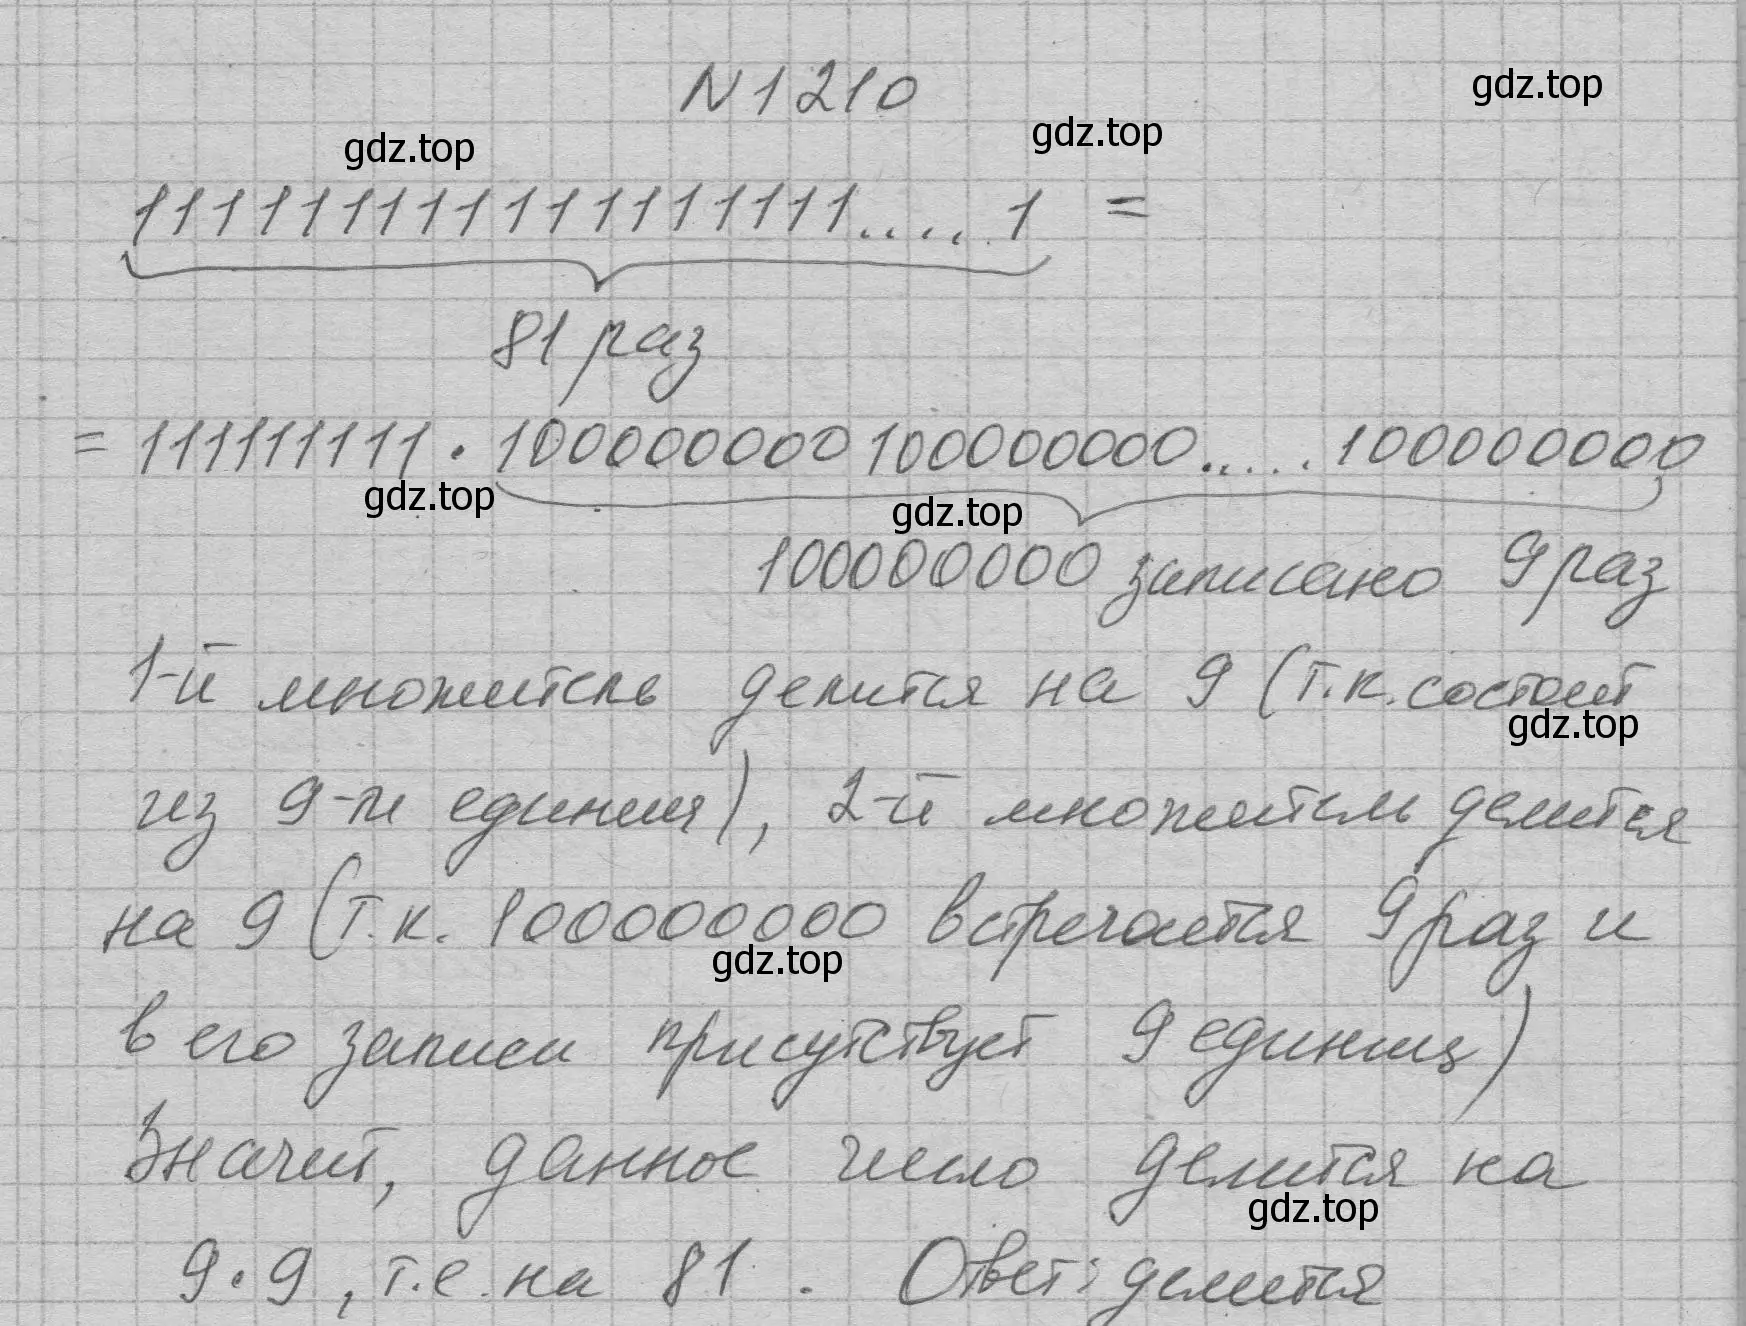 N 1210
gdz.top
gdz.top
gdz.top
111111111111111111..... 1 =
81 раз
= 111111111 · 100000000 100000000...... 100000000
gdz.top
gdz.top
100000000 записано 9 раз
1-й множитель делится на 9 (т.к. состоит
gdz.top
из 9-ти единиц), 2-й множитель делится
на 9 (т.к. 100000000 встречается 9 раз и
gdz.top
в его записи присутствует 9 единиц)
Значит, данное число делится на
gdz.top
9·9, т.е. на 81. Ответ: делится